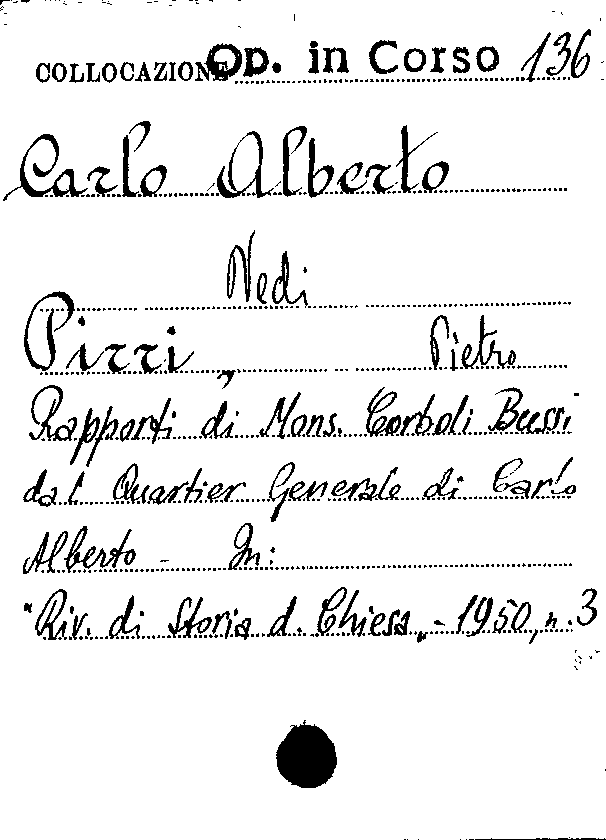 COLLOCAZIONE Op. in Corso 136
Carlo Alberto
Vedi
Pirri, Pietro
Rapporti di Mons. Corboli Bussi
dal Quartier Generale di Carlo
Alberto - In:
"Riv. di Storia d. Chiesa„ - 1950, n. 3